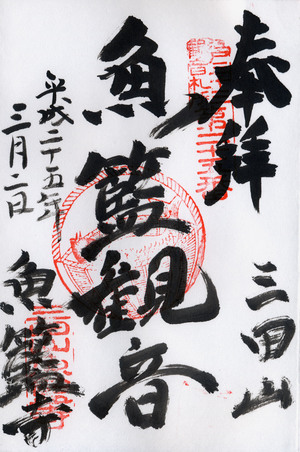 奉拝
三田山
魚籃観音
平成二十五年
三月二日
魚籃寺